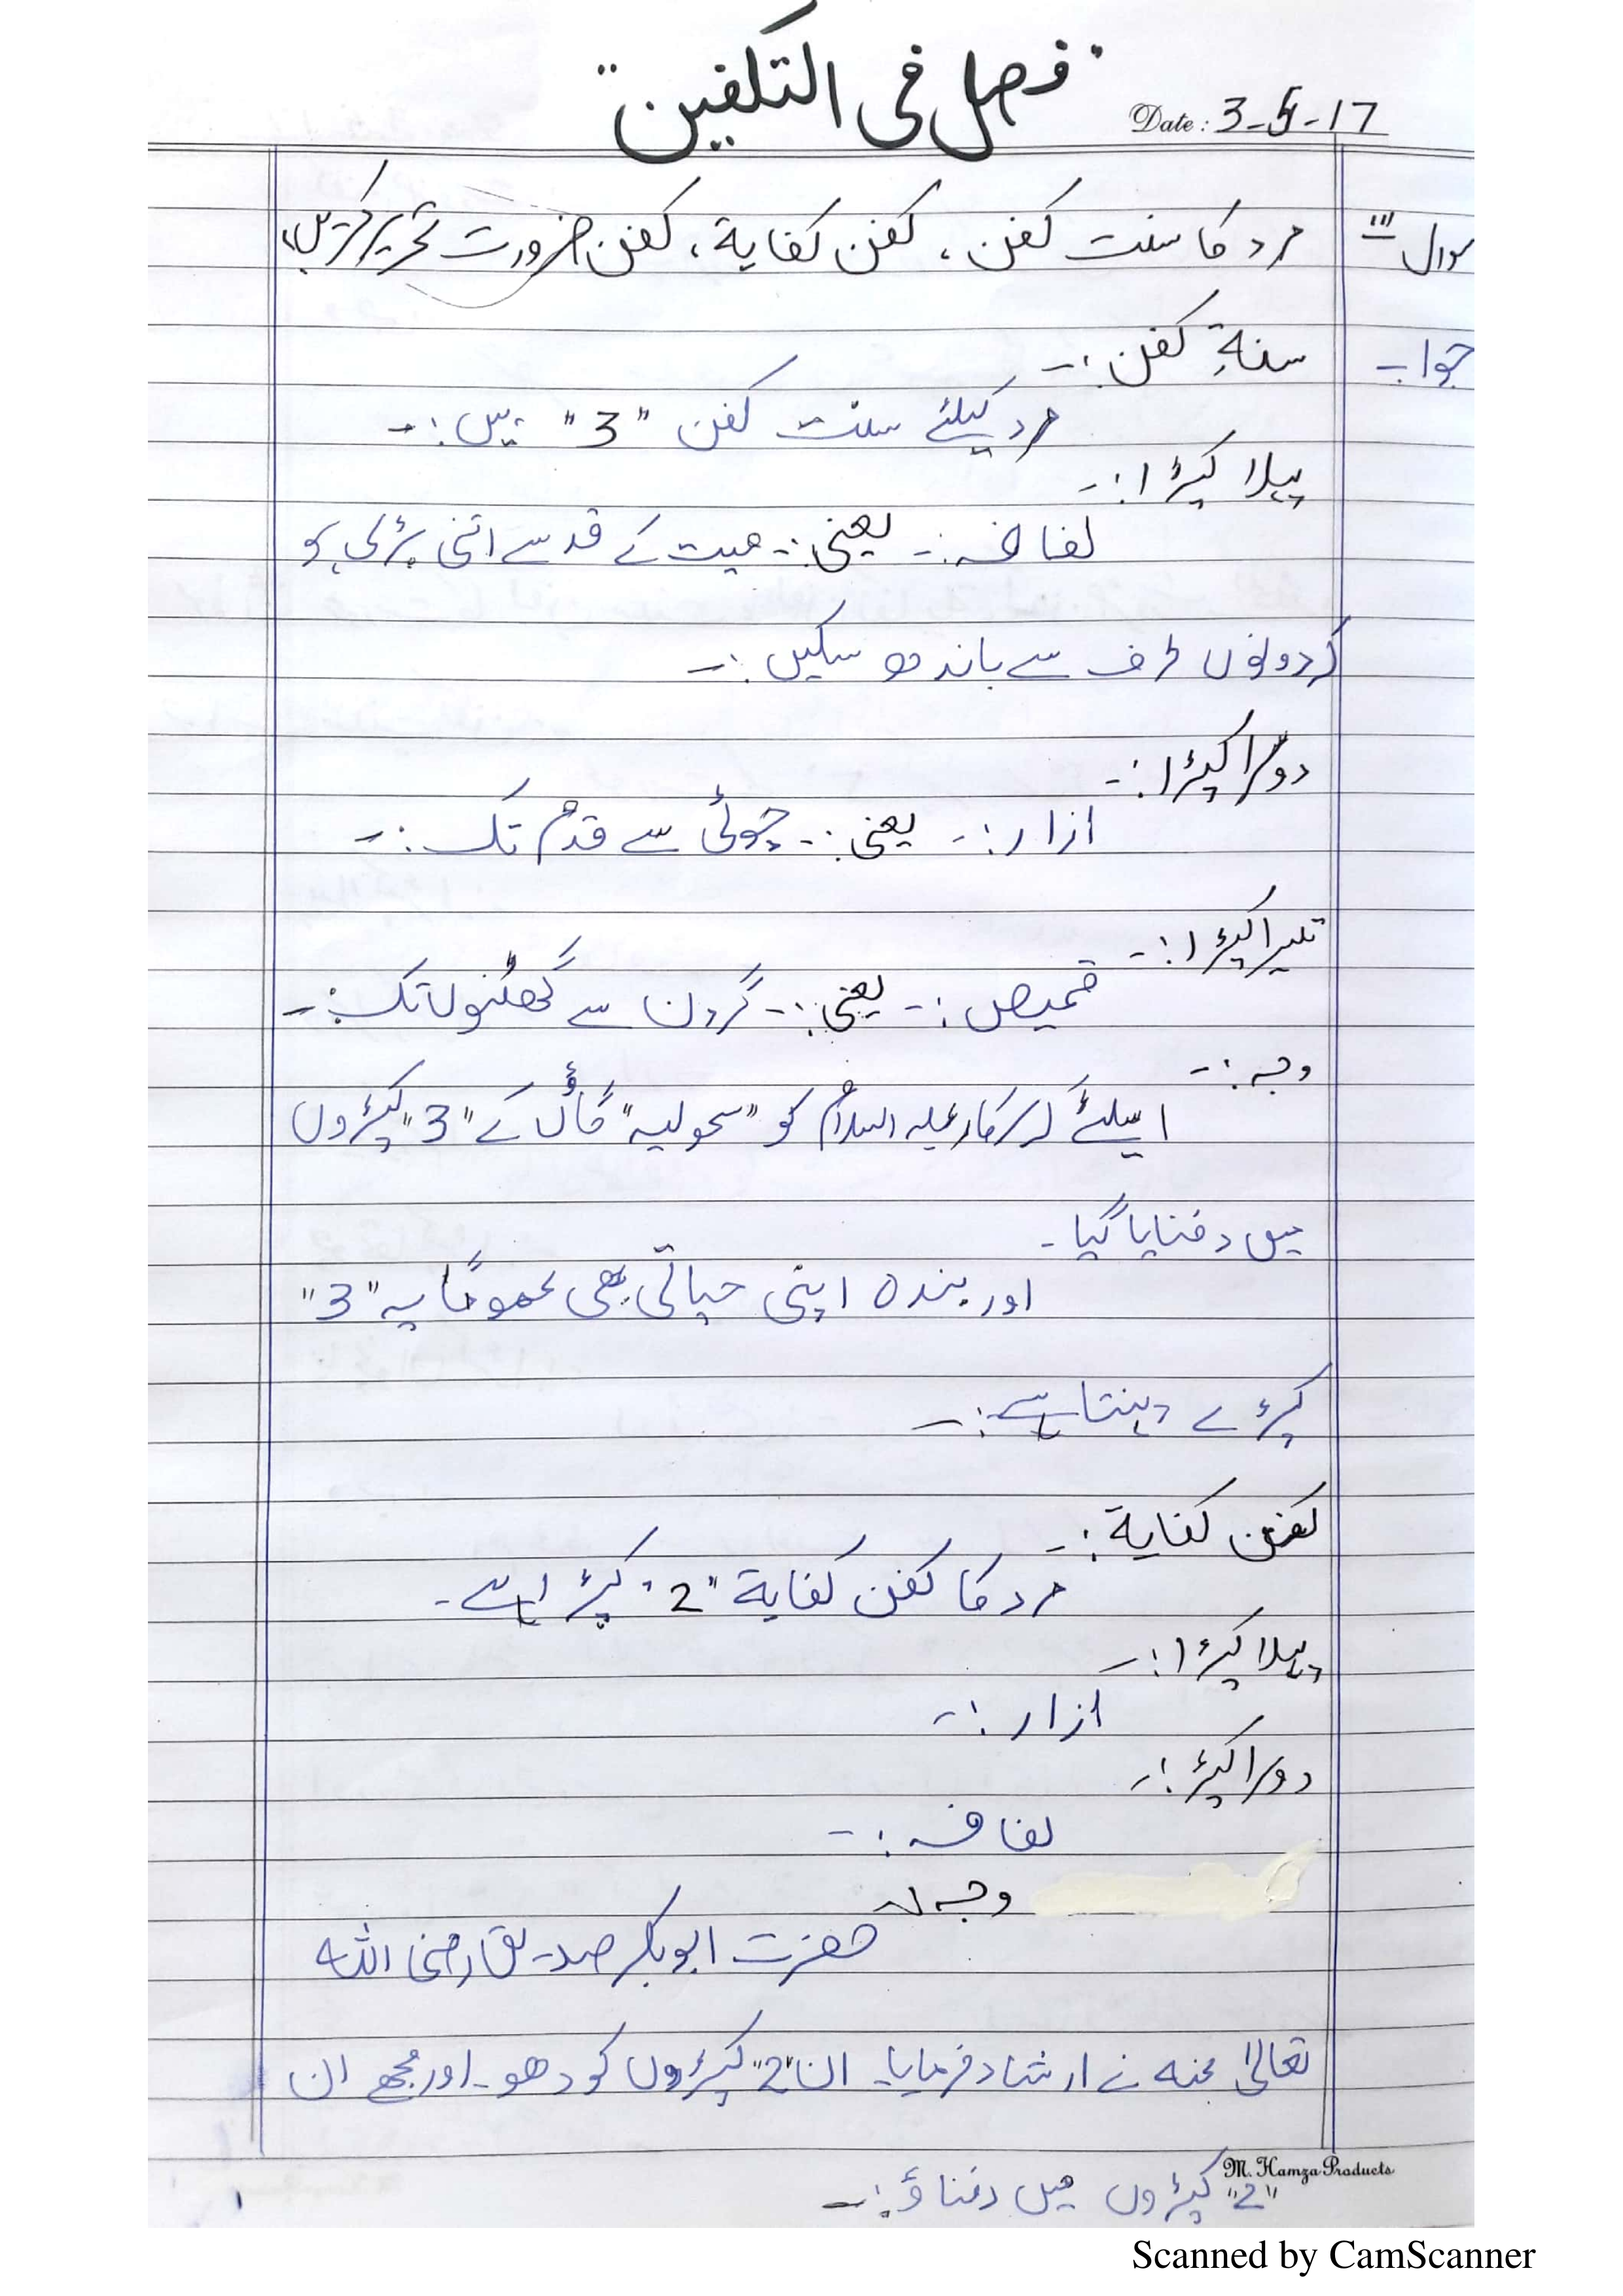 "فصل فی التکفین"
Date: 3-5-17
سوال مرد کا سنت کفن ، کفن کفایۃ ، کفن ضرورت تحریر کریں
جواب سنۃِ کفن :-
مرد کیلئے سنت کفن "3" ہیں :-
پہلا کپڑا :-
لفافہ :- یعنی :- میت کے قد سے اتنی بڑی ہو
کہ دونوں طرف سے باندھ سکیں :-
دوسرا کپڑا :-
ازار :- یعنی :- چوٹی سے قدم تک :-
تیسرا کپڑا :-
قمیص :- یعنی :- گردن سے گھٹنوں تک :-
وجہ :-
اسلئے کہ سرکار علیہ السلام کو "سحولیہ" گاؤں کے "3" کپڑوں
میں دفنایا گیا -
اور بندہ اپنی حیاتی بھی عموماً یہ "3"
کپڑے پہنتا ہے :-
کفن کفایۃ :-
مرد کا کفن کفایۃ "2" کپڑا ہے -
پہلا کپڑا :-
ازار :-
دوسرا کپڑ :-
لفافہ :-
وجہ
حضرت ابوبکر صدیق رضی اللہ
تعالیٰ عنہ نے ارشاد فرمایا- ان "2" کپڑوں کو دھو - اور مجھے ان
"2" کپڑوں میں دفناؤ :-
M. Hamza Products
Scanned by CamScanner